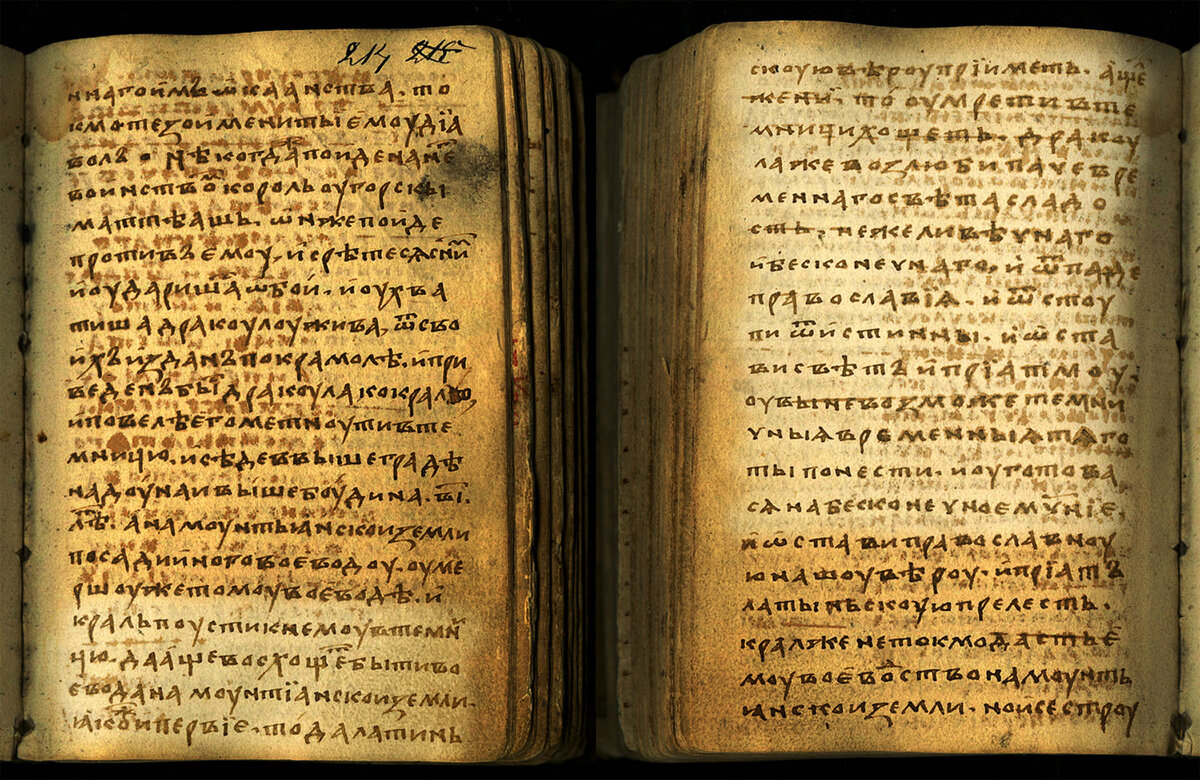 213
ннагоимъ ѡкаанства. то
кмо тезоименитыемоудїа
волъ о нѣкогда поиде нане
воинствѡ король оугорскы
маттѣашь. ѡнже поиде
противъ емоу, и срѣтесѧ сними
и оударишаⷭ҇ ѡбои. и оухва
тиша дракоулоу жива, ѿ сво
ихъ изданъ по крамолѣ. и при
веденъ бы дракоула ко кралю,
и повелѣ его метноути въ те
мницю. и сѣде в вышеградѣ
на доунаи выше боудина. в҃і.
лѣⷮ. а на моунтьанскои земли
посади иного воеводоу. оуме
ршоу же томоу воеводѣ. и
краль поусти к немоу в темнї
цю. да аще восхощеⷮ быти во
евода на моунтїанскои земли.
ꙗкоⷤ и первїе. то да латинь
скоую вѣроу прїиметь. аще
же ни, то оумрети в те
мници хощеть. дракоу
ла же возлюби паче вре
меннаго свѣта сладо
сть. нежели вѣчнаго
и бесконечнаго, и ѿпаде
православїа. и ѿстоу
пи ѿ истинны. и ѡста
ви свѣтъ и прїат моу.
оувы не возможе темни
чныа временныа тѧго
ты понести. и оуготова
сѧ на бесконечное моучⷩ҇їе.
и ѡстави православноу
ю нашоу вѣроу. и прїатъ
латыньскоую прелесть.
краль же не токмо дасть е
моу воеводство на моунть
ꙗнскои земли. но и сестроу